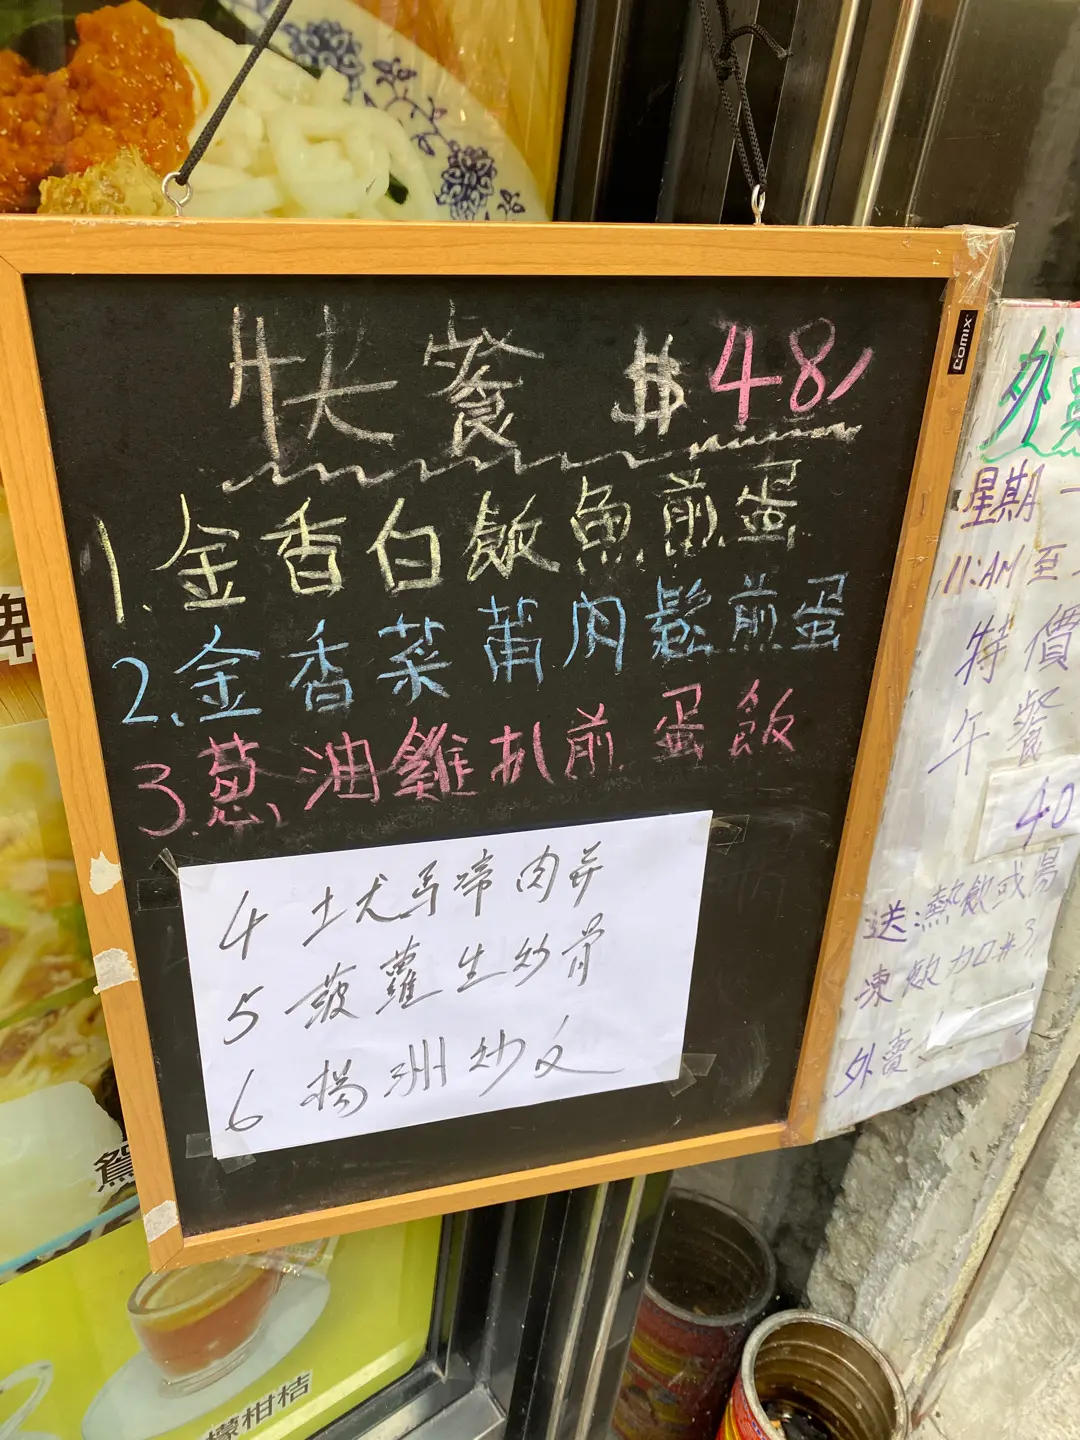 快餐 $48
1.金香白飯魚煎蛋
2.金香菜莆肉鬆煎蛋
3.蔥油雞扒煎蛋飯
4 土尤馬啼肉并
5 菠蘿生炒骨
6 揚洲炒反
comix
外賣
星期一
11:AM至
特價
午餐
40
送:熱飲或湯
凍飲加#3
外賣
鴛
檬柑桔